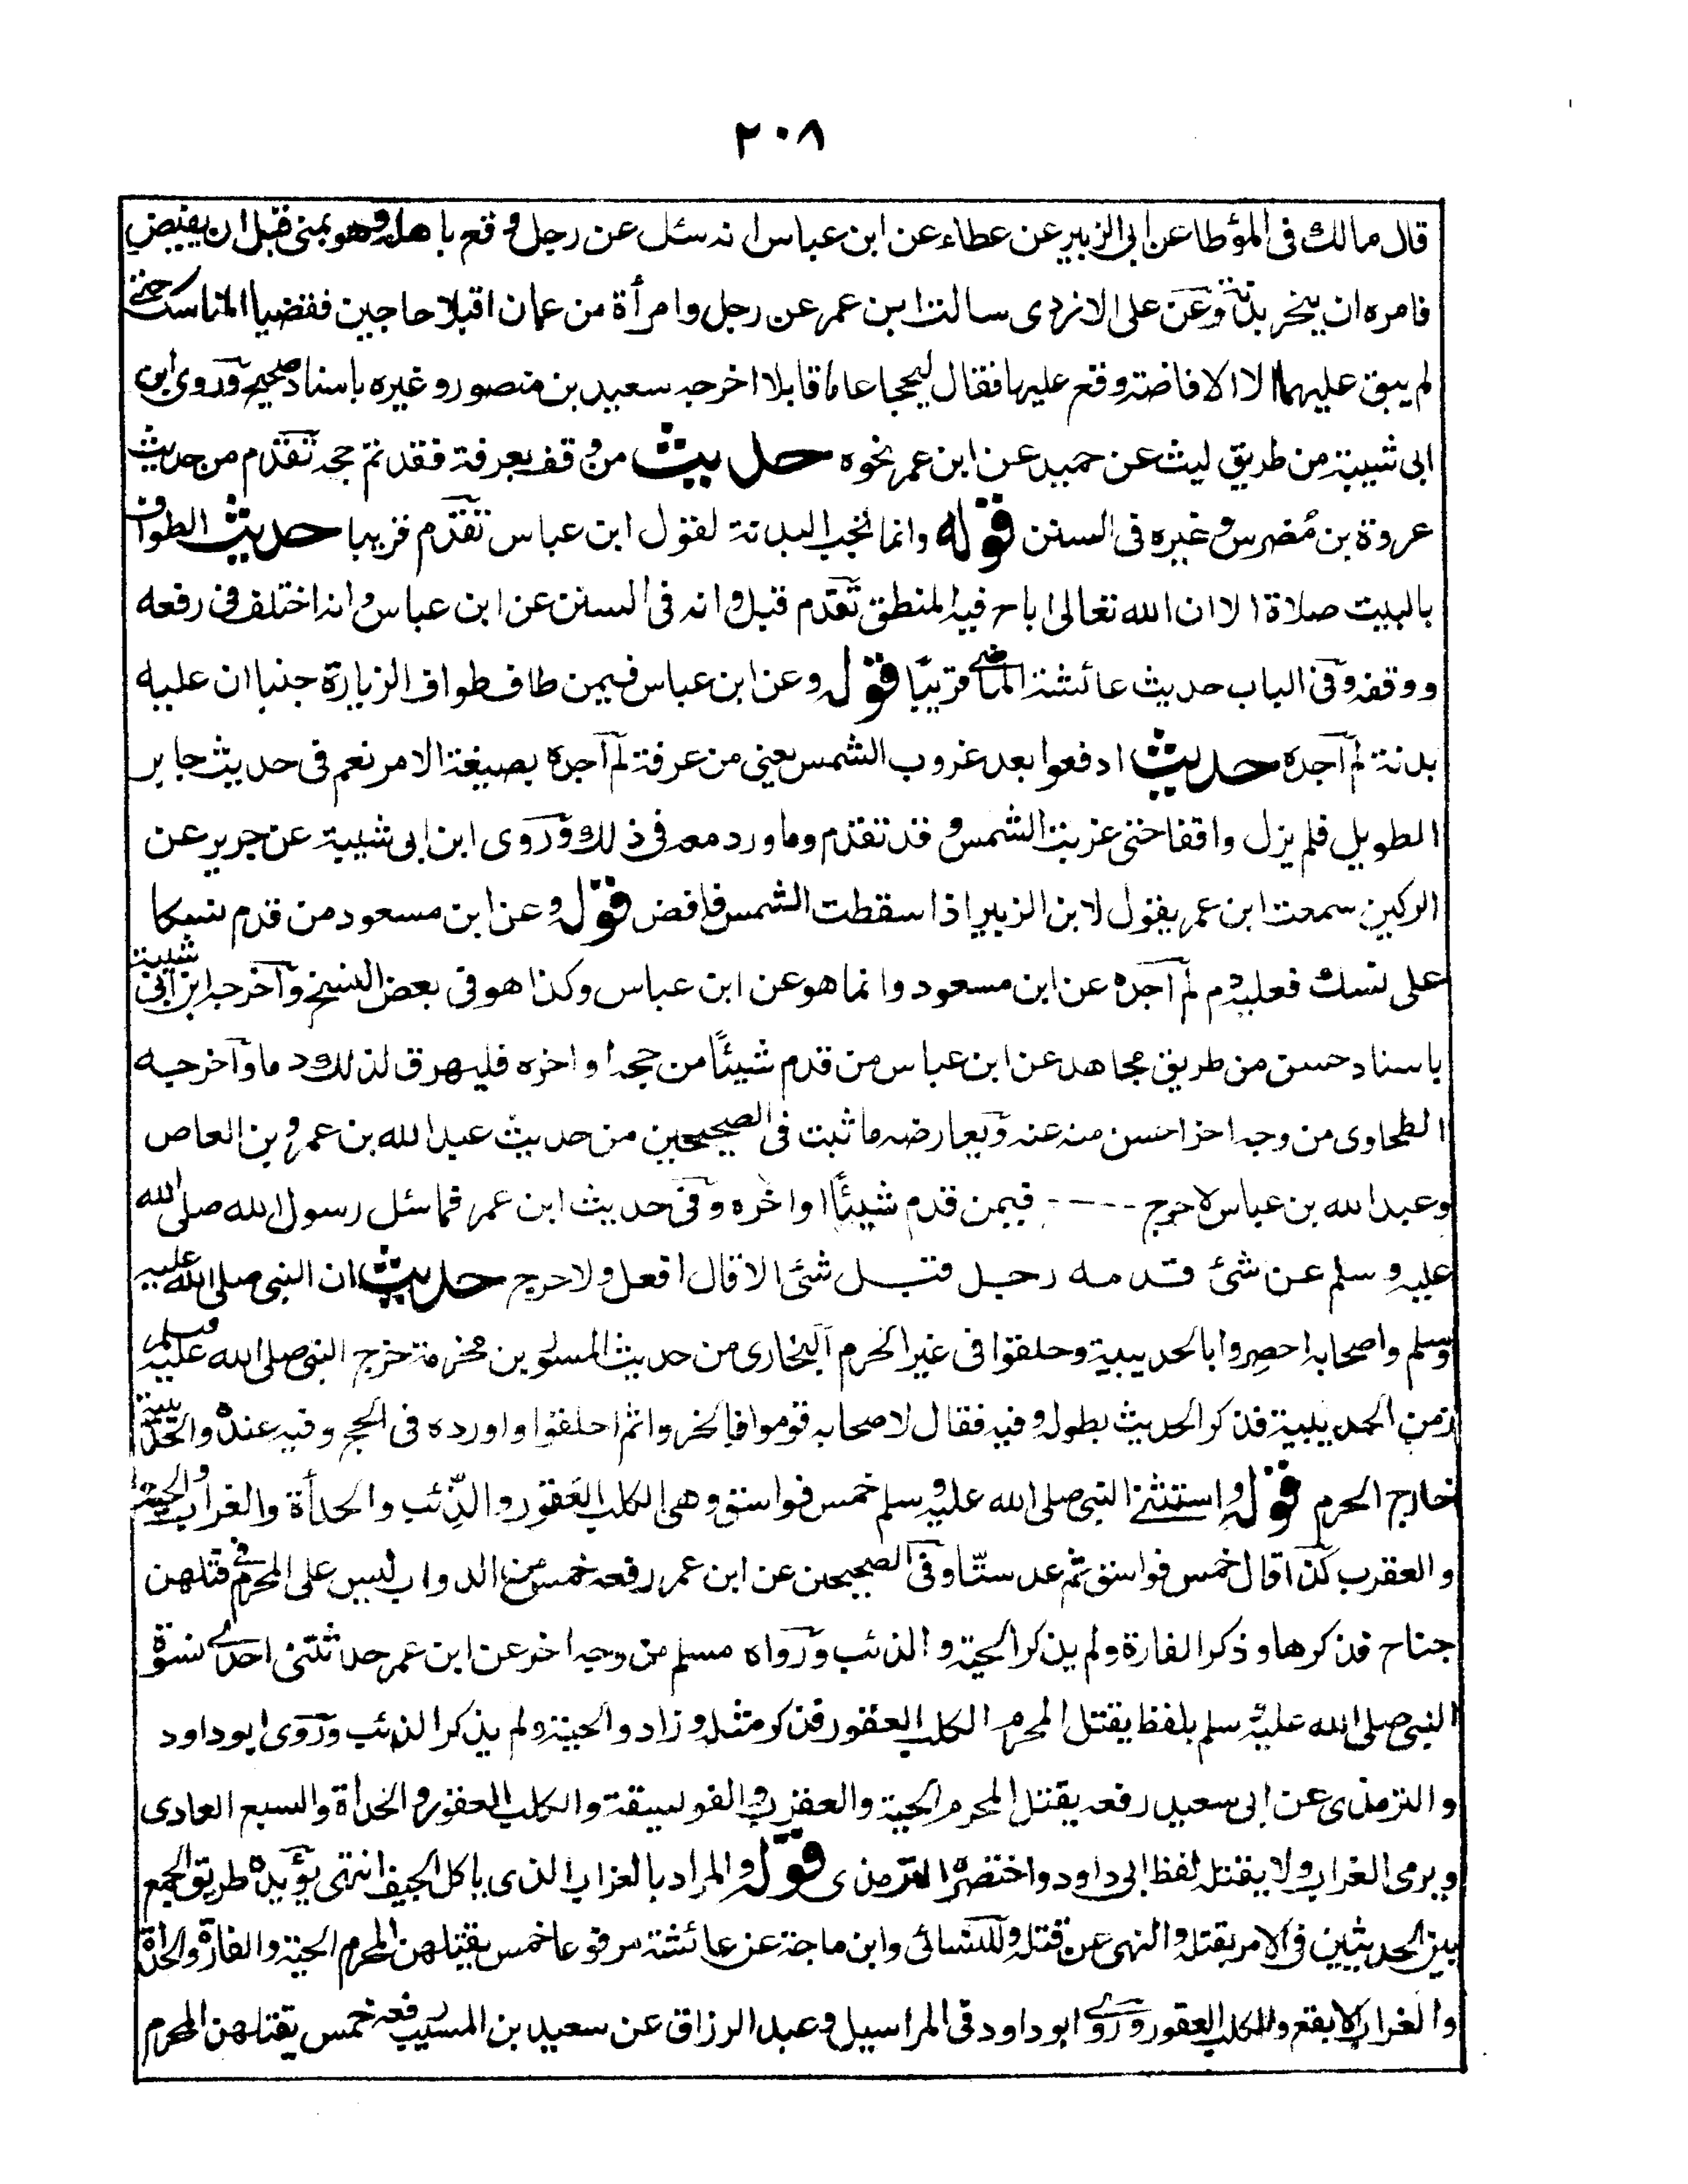 ٢٠٨
قال مالك فى المؤطا عن ابى الزبير عن عطاء عن ابن عباس انه سئل عن رجل وقع باهله وهو بمنى قبل ان يفيض
فامره ان ينحر بدنة وعن على الازدى سالت ابن عمر عن رجل وامرأة من عمان اقبلا حاجين فقضيا المناسك حتى
لم يبق عليهما الا الافاضة وقع عليها فقال ليحجا عاما قابلا اخرجه سعيد بن منصور وغيره باسناد صحيح وروى ابن
ابى شيبة من طريق ليث عن حميد عن ابن عمر نحوه حديث من وقف بعرفة فقد تم حجه تقدم من حديث
عروة بن مُضرس وغيره فى السنن قوله وانما تجب البدنة لقول ابن عباس تقدم قريبا حديث الطواف
بالبيت صلاة الا ان الله تعالى اباح فيه المنطق تقدم قبل وانه فى السنن عن ابن عباس وانه اختلف فى رفعه
ووقفه وفى الباب حديث عائشة الماضے قريبًا قوله وعن ابن عباس فيمن طاف طواف الزيارة جنبا ان عليه
بدنة لم اجده حديث ادفعوا بعد غروب الشمس يعنى من عرفة لم اجده بصيغة الامر نعم فى حديث جابر
الطويل فلم يزل واقفا حتى غربت الشمس وقد تقدم وما ورد معه فى ذلك وروى ابن ابى شيبة عن جرير عن
الركين سمعت ابن عمر يقول لابن الزبير اذا سقطت الشمس فافض قوله وعن ابن مسعود من قدم نسكا
على نسك فعليه دم لم اجده عن ابن مسعود وانما هو عن ابن عباس وكذا هو فى بعض النسخ واخرجه ابن ابى شيبة
باسناد حسن من طريق مجاهد عن ابن عباس من قدم شيئًا من حجه او اخره فليهرق لذلك دما واخرجه
الطحاوى من وجه اخر احسن منه عنه ويعارضه ما ثبت فى الصحيحين من حديث عبد الله بن عمرو بن العاص
وعبد الله بن عباس لا حرج ---- فيمن قدم شيئًا او اخره وفى حديث ابن عمر فما سئل رسول الله صلى الله
عليه وسلم عن شئ قدمه رجل قبل شئ الا قال افعل ولا حرج حديث ان النبى صلى الله عليه
وسلم واصحابه احصروا بالحديبية وحلقوا فى غير الحرم البخارى من حديث المسور بن مخرمة خرج النبى صلى الله عليه وسلم
زمن الحديبية فذكر الحديث بطوله وفيه فقال لاصحابه قوموا فانحروا ثم احلقوا واورده فى الحج وفيه عنده والحديبية
خارج الحرم قوله واستثنے النبى صلى الله عليه وسلم خمس فواسق وهى الكلب العَقور والذِّئب والحدأة والغراب والحية
والعقرب كذا قال خمس فواسق ثم عد ستّا وفى الصحيحين عن ابن عمر رفعه خمس من الدواب ليس على المحرم فى قتلهن
جناح فذكرها وذكر الفارة ولم يذكر الحية والذئب ورواه مسلم من وجه اخر عن ابن عمر حدثتنى احدى نسوة
النبى صلى الله عليه وسلم بلفظ يقتل المحرم الكلب العقور فذكر مثله وزاد والحية ولم يذكر الذئب وروى ابو داود
والترمذى عن ابى سعيد رفعه يقتل المحرم الحية والعقرب والفويسقة والكلب العقور والحدأة والسبع العادى
ويرمى الغراب ولا يقتله لفظ ابى داود واختصره الترمذى قوله والمراد بالغراب الذى ياكل الجيف انتهى يؤيده طريق الجمع
بين الحديثين فى الامر بقتله والنهى عن قتله وللنسائى وابن ماجة عن عائشة مرفوعا خمس يقتلهن المحرم الحية والفارة والحدأة
والغراب الابقع والكلب العقور وروے ابو داود فى المراسيل وعبد الرزاق عن سعيد بن المسيب رفعه خمس يقتلهن المحرم